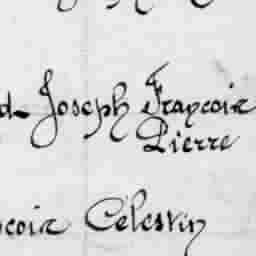 d Joseph François
Pierre
çois Célestin